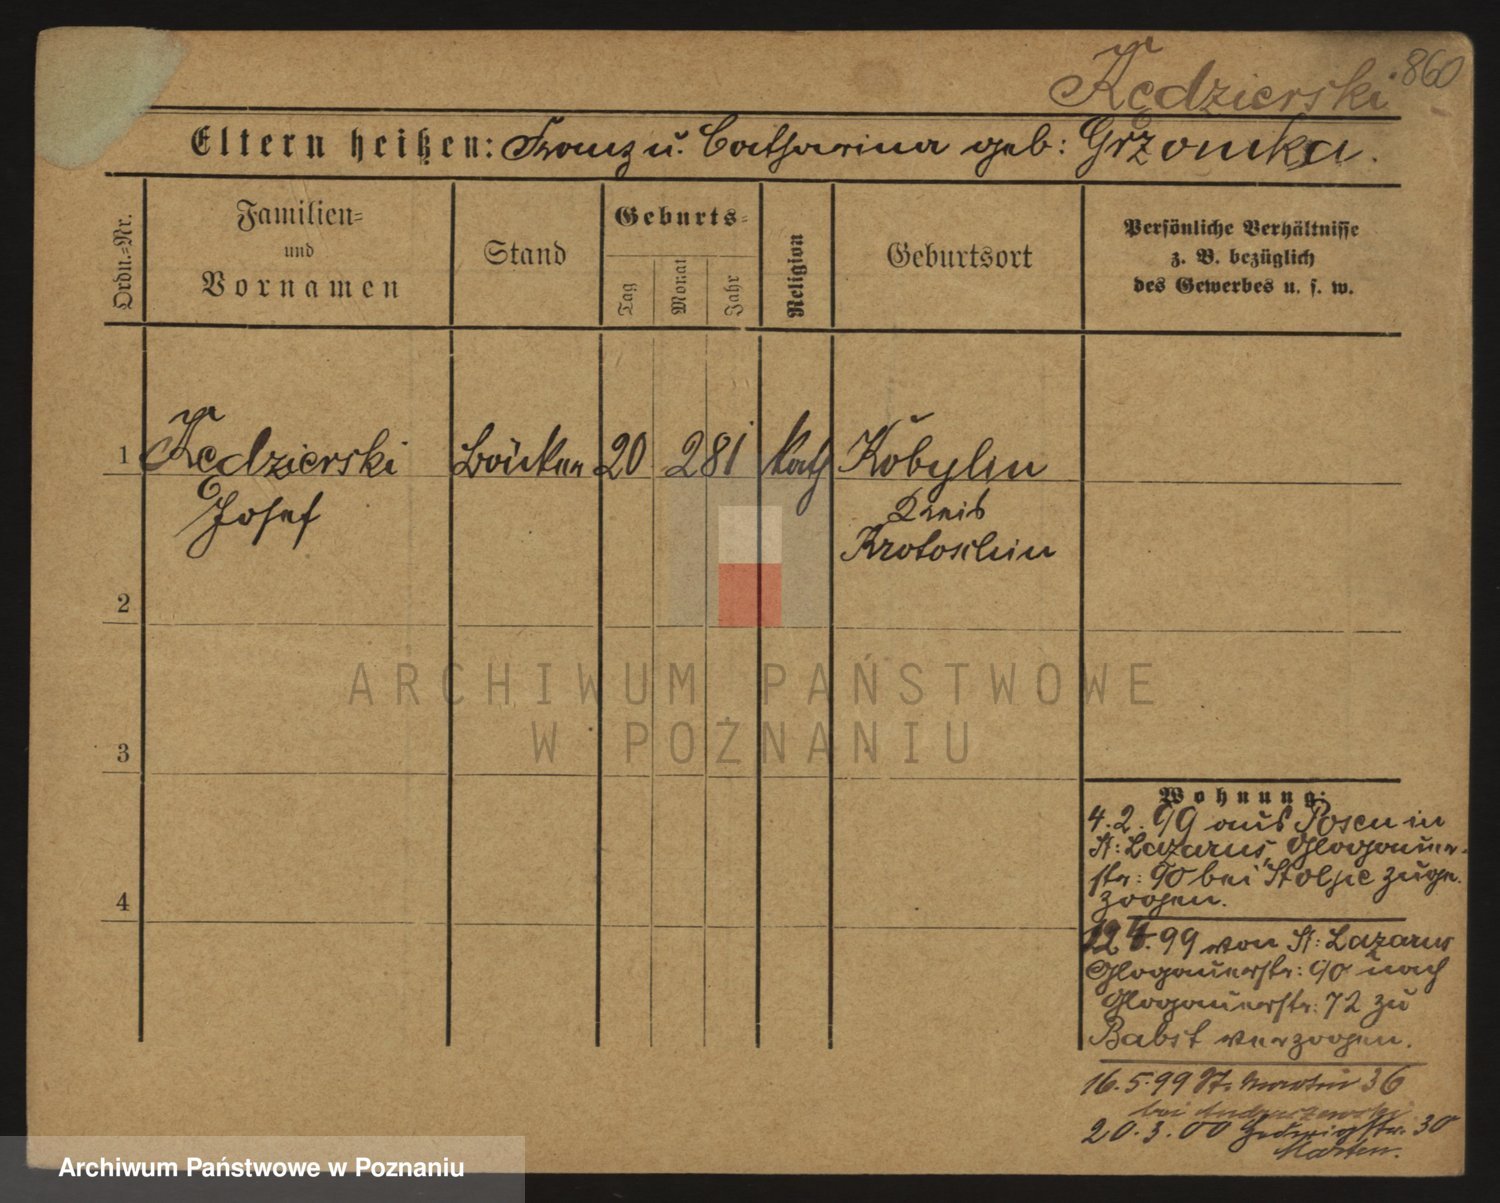 860
Kędzierski
Eltern heißen: Franz u. Catharina geb: Grzonka.
Ordn.=Nr.
Familien=
und
Vornamen
Stand
Geburts=
Tag
Monat
Jahr
Religion
Geburtsort
Persönliche Verhältnisse
z. B. bezüglich
des Gewerbes u. s. w.
1 Kędzierski 20 2 81 kath Kobylin
Josef Kreis
Krotoschin
2
3
4
ARCHIWUM PAŃSTWOWE
W POZNANIU
Wohnung:
4. 2. 99 aus Posen in
St: Lazarus, Glogauer-
str: 90 bei zuge-
zogen.
4. 99 von St: Lazarus
Glogauerstr: 90 nach
Glogauerstr: 72 zu
Babst verzogen.
16. 5. 99 St. Martin 36
bei Andruszewski
20. 3. 00 Hedwigstr. 30
Archiwum Państwowe w Poznaniu